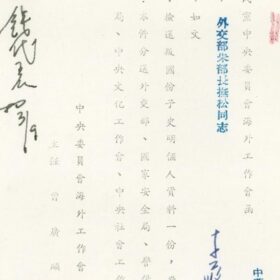 民黨中央委員會海外工作會函
外交部朱部長撫松同志
如文
檢送叛國份子史明個人資料一份，
本件分送外交部、國家安全局、警
局、中央文化工作會、中央社會工
中央委員會海外工作會
主任 曾廣順